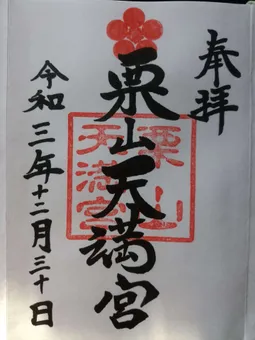 奉拝
栗山天満宮
栗山
天満宮
令和三年十二月三十日